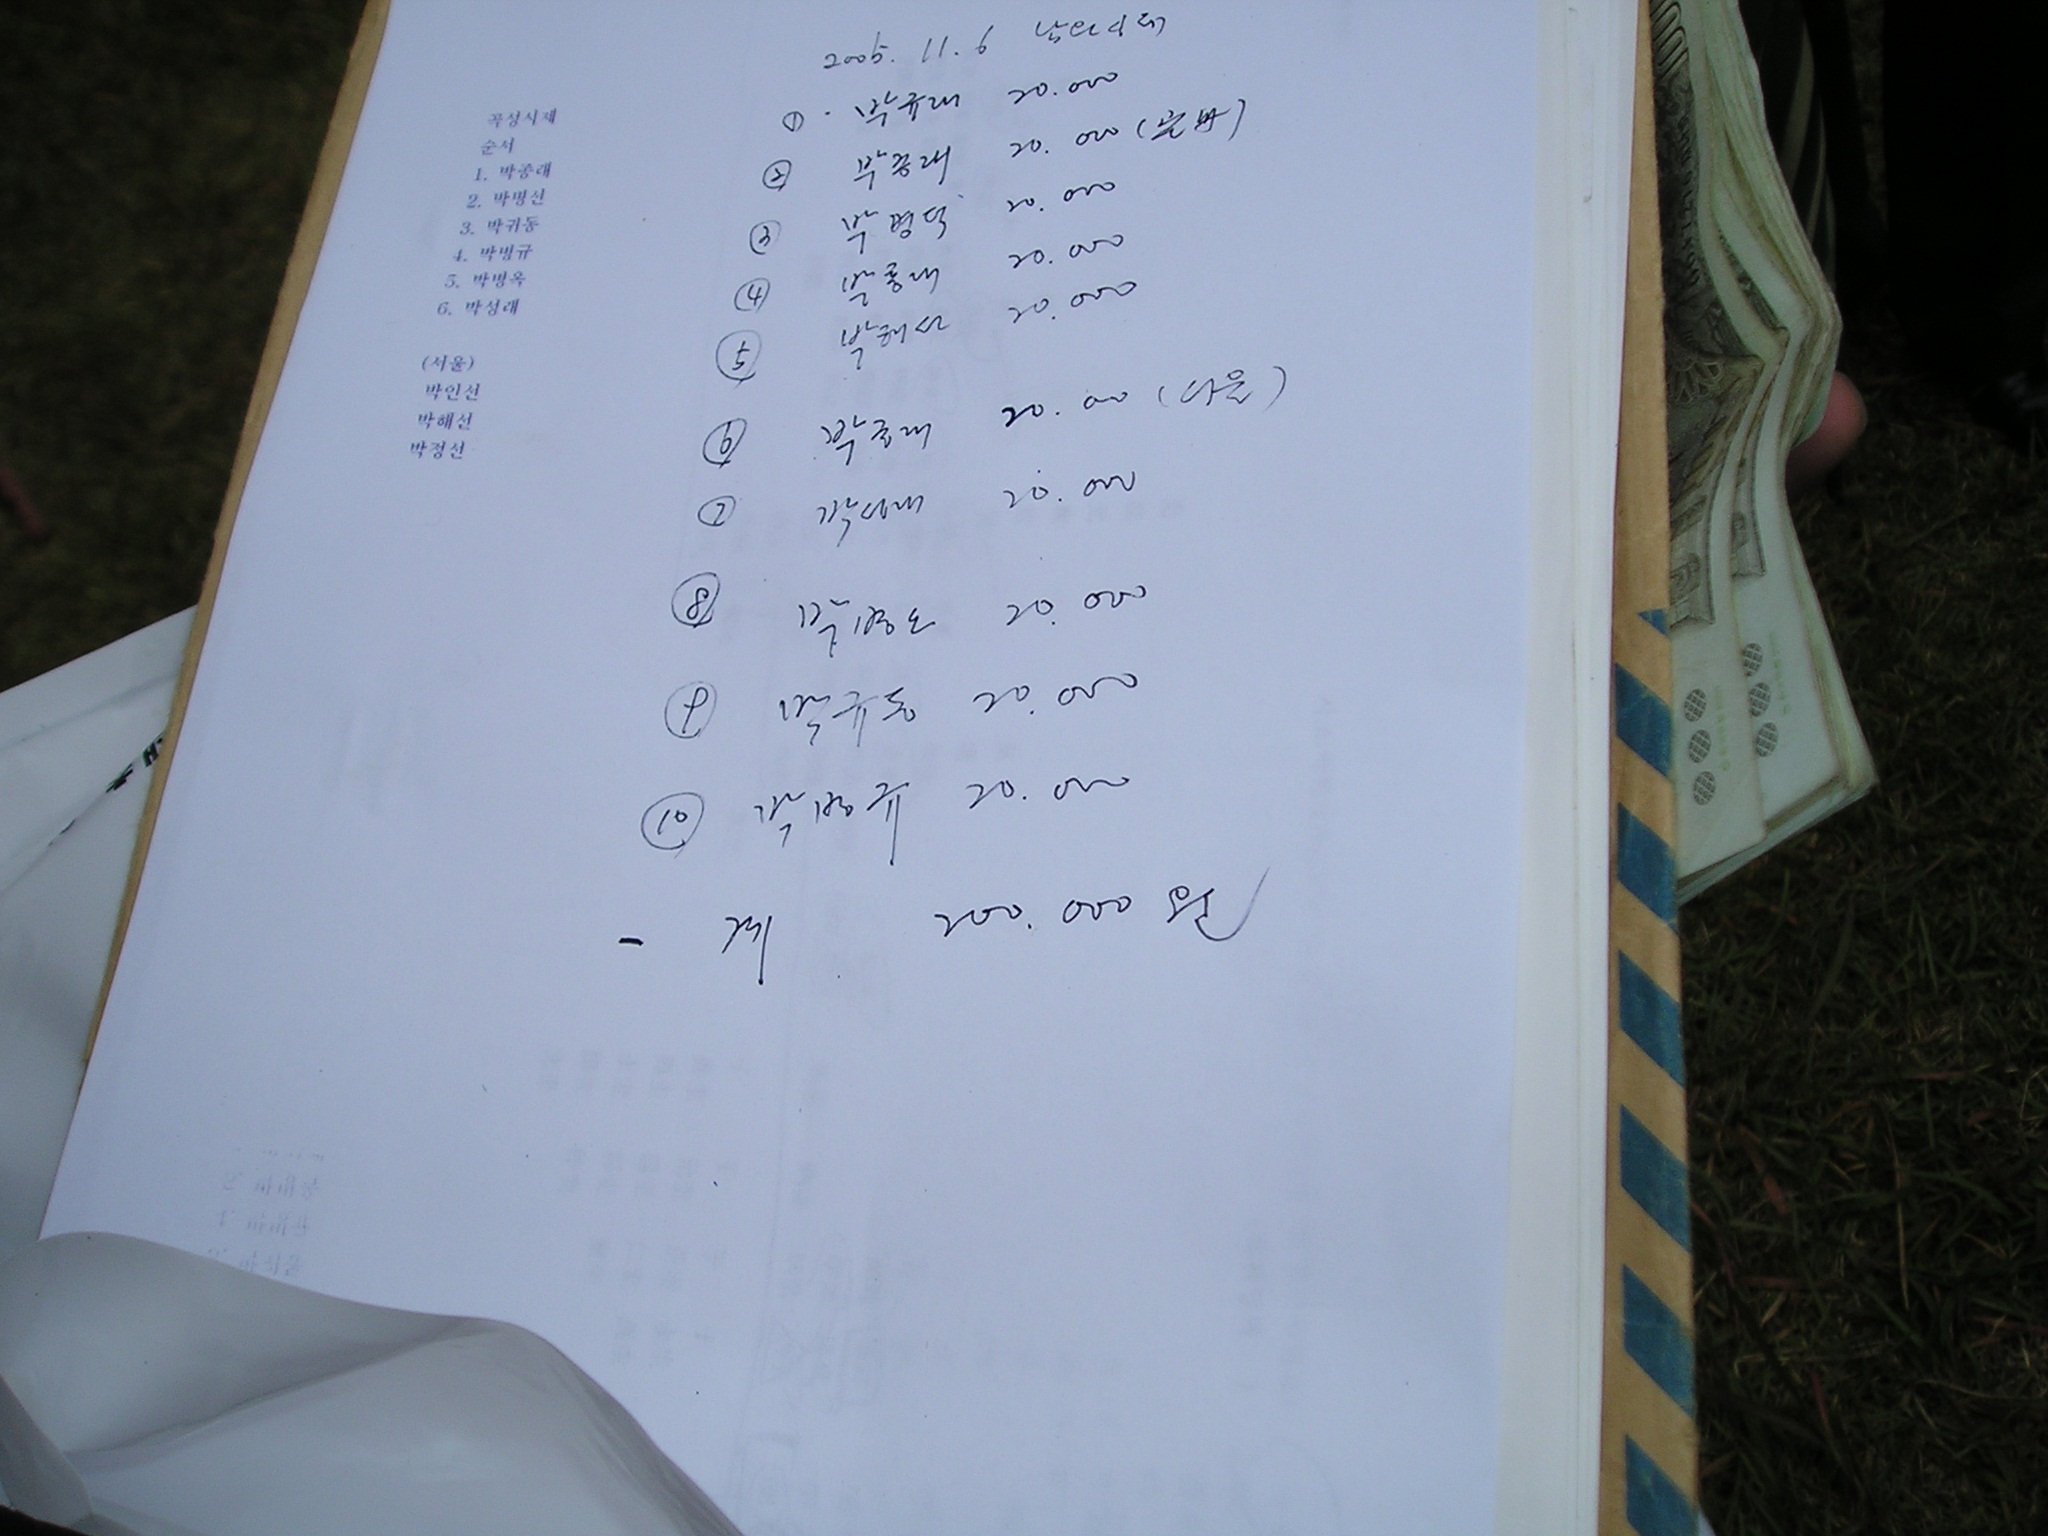 2005. 11. 6
곡성시제
순서
1. 박종래
2. 박명선
3. 박귀동
4. 박병규
5. 박병옥
6. 박성래
(서울)
박인선
박해선
박정선
① 박규래 20.000
② 박종래 20.000
③ 박명덕 20.000
④ 박홍래 20.000
⑤ 박해선 20.000
⑥ 20.000 (다을)
⑦ 박성래 20.000
⑧ 20.000
⑨ 박규동 20.000
⑩ 박병규 20.000
- 계 200.000 원